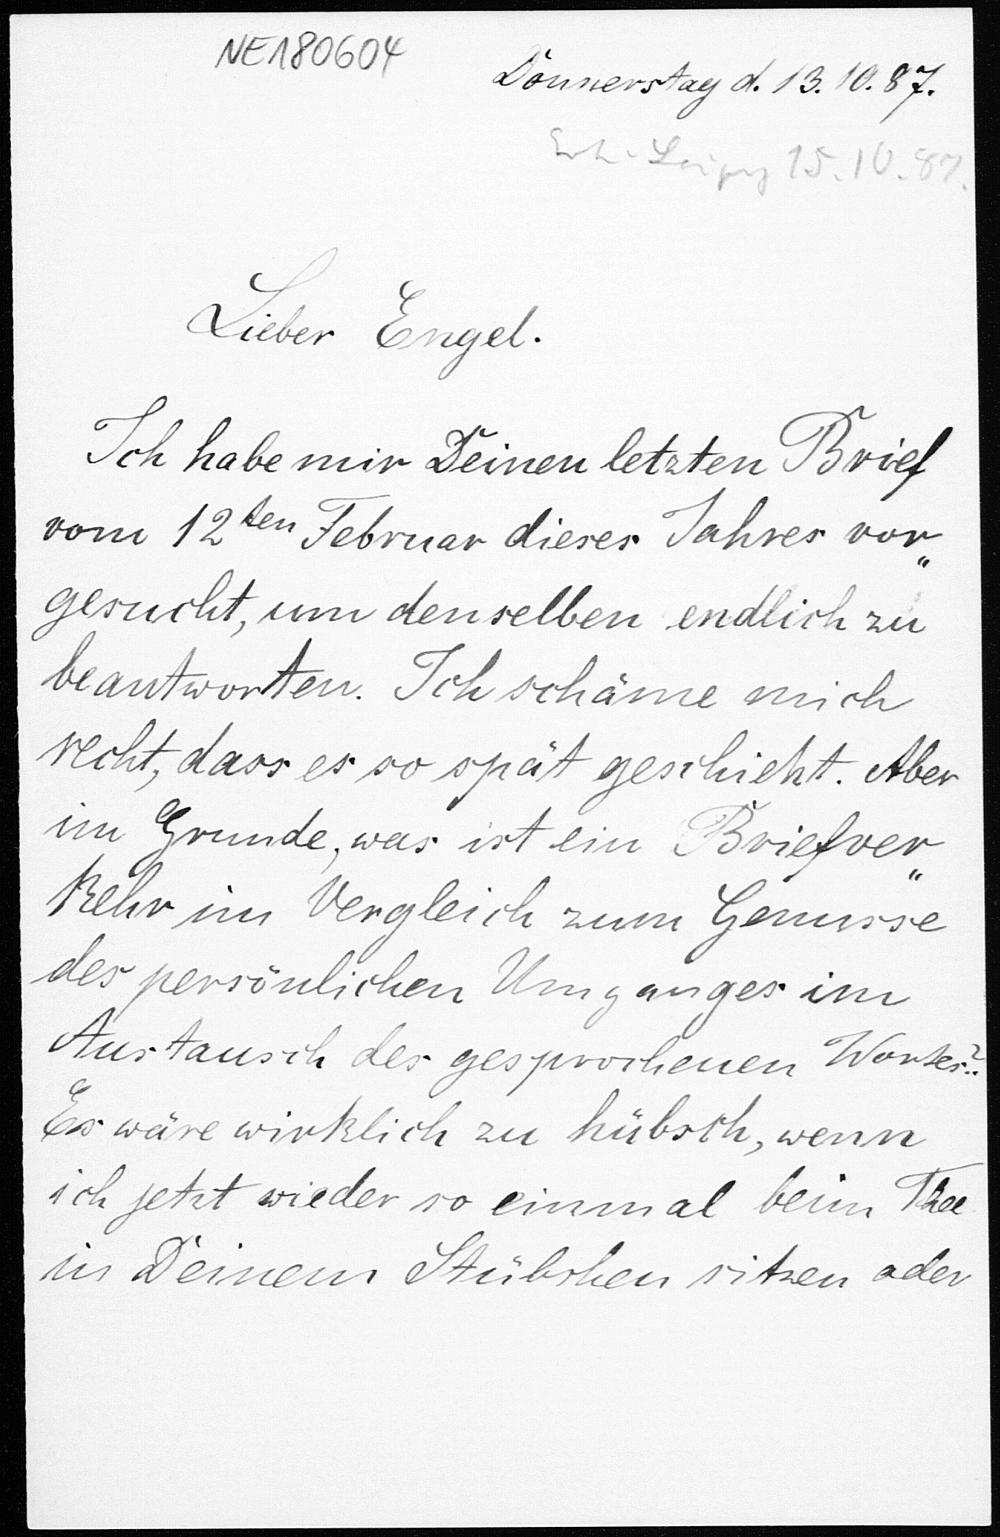 NE180604
Donnerstag d. 13.10.87.
Erh. Leipzig 15.10.87.
Lieber Engel.
Ich habe mir Deinen letzten Brief
vom 12ten Februar dieses Jahres vor„
gesucht, um denselben endlich zu
beantworten. Ich schäme mich
recht, dass es so spät geschieht. Aber
im Grunde, was ist ein Briefver„
kehr im Vergleich zum Genusse
des persönlichen Umganges im
Austausch des gesprochenen Wortes?
Es wäre wirklich zu hübsch, wenn
ich jetzt wieder so einmal beim Thee
in Deinem Stübchen sitzen oder